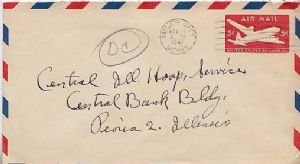 DC
AIR MAIL
5¢ 5¢
UNITED STATES OF AMERICA
Central Ill Hosp, Service
Central Bank Bldg.
Peoria 2. Illinois